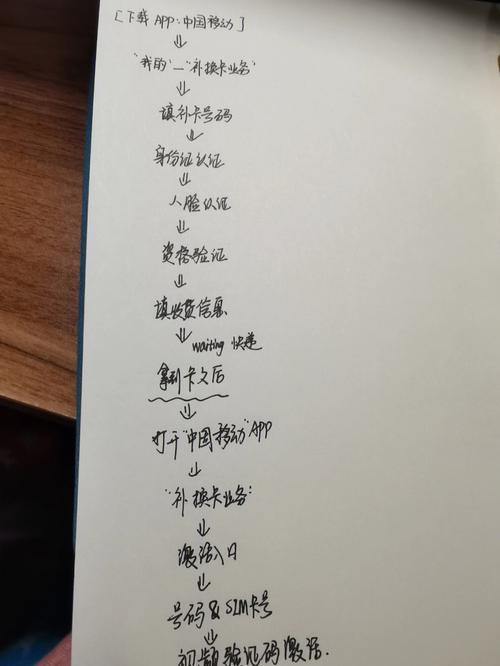 [下载 APP:中国移动]
⇓
"我的"—"补换卡业务"
⇓
填补卡号码
⇓
身份证认证
⇓
人脸认证
⇓
资格验证
⇓
填收货信息
⇓ waiting 快递
拿到卡之后
⇓
打开"中国移动"APP
⇓
"补换卡业务":
⇓
激活入口
⇓
号码 & SIM卡号
⇓
视频验证码激活.